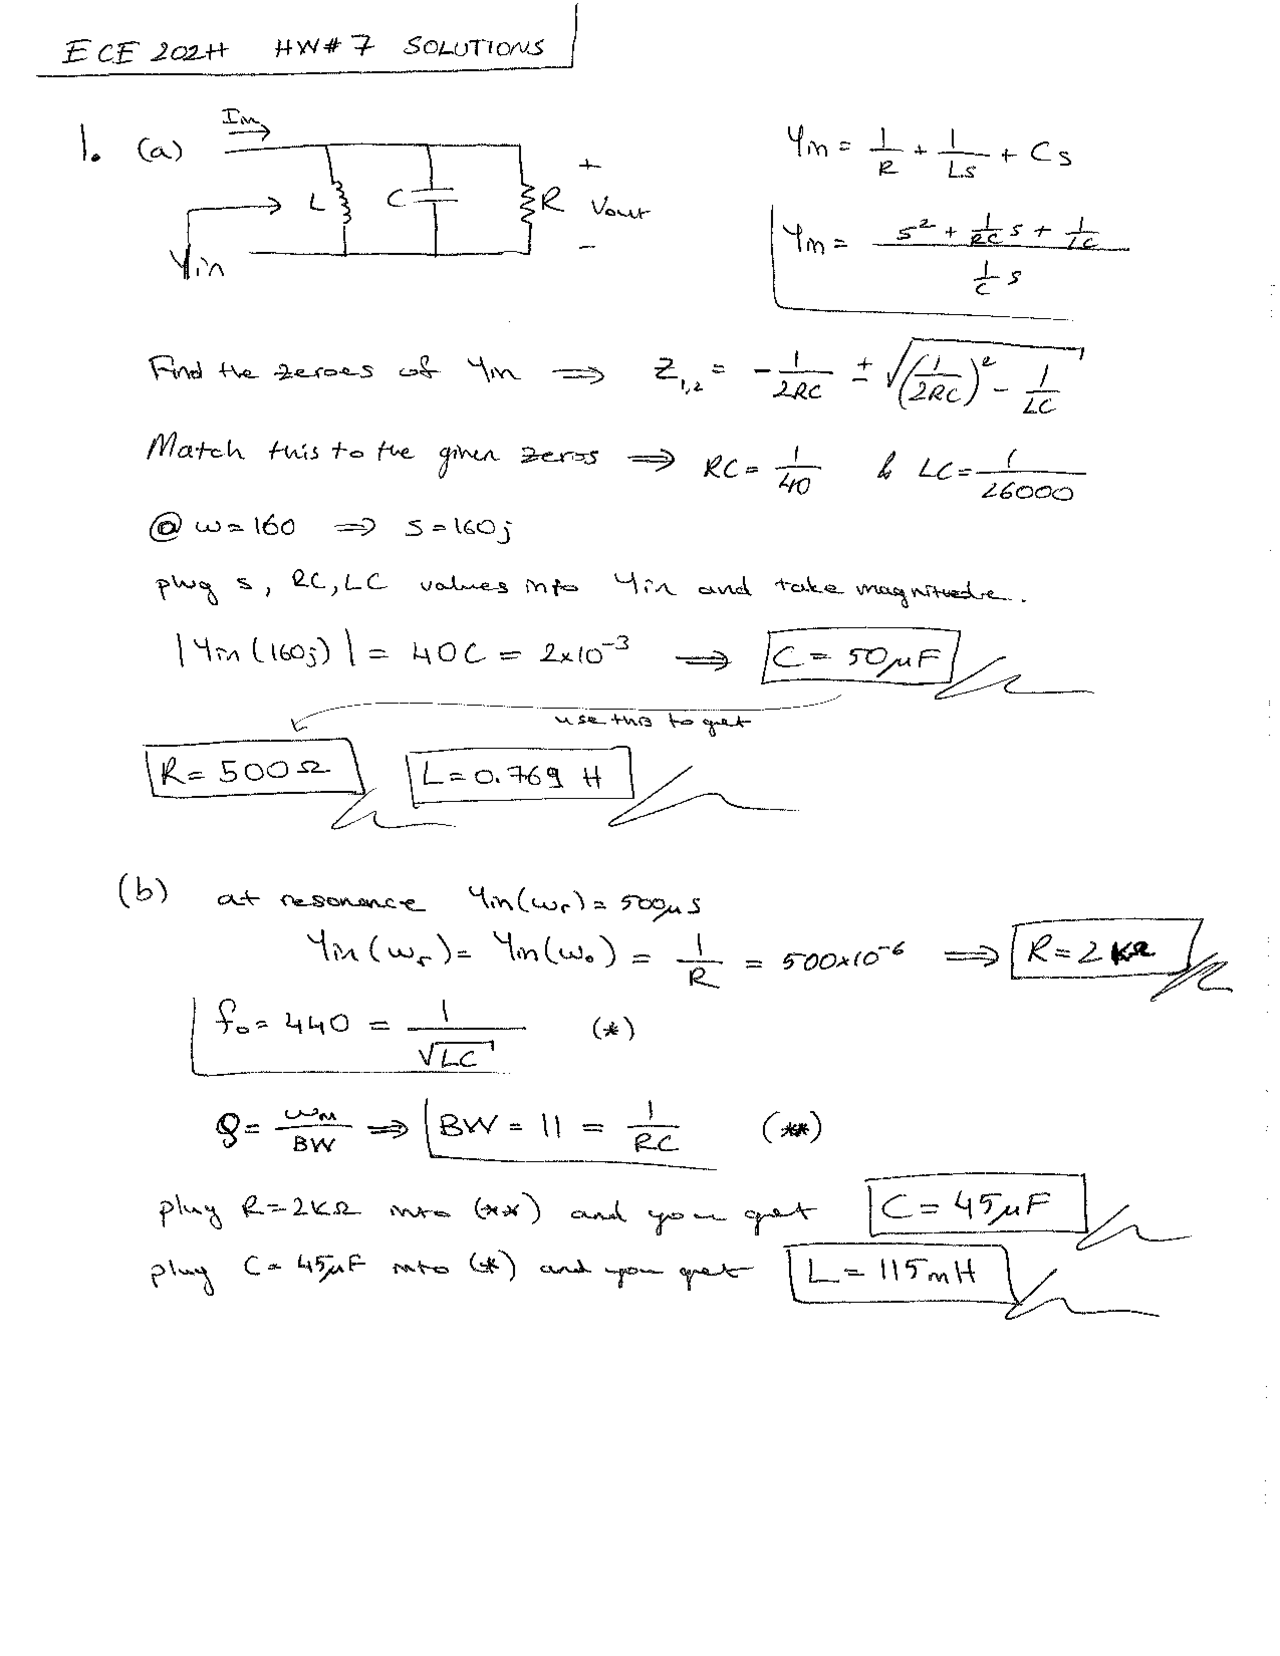 ECE 202H HW# 7 SOLUTIONS
1. (a)
Iin
L C R + Vout −
Yin
Yin = 1/R + 1/Ls + Cs
Yin = (s² + 1/RC s + 1/LC) / (1/C s)
Find the zeroes of Yin ⇒ Z1,2 = − 1/2RC ± √((1/2RC)² − 1/LC)
Match this to the given zeros ⇒ RC = 1/40 & LC = 1/26000
@ w = 160 ⇒ s = 160j
plug s, RC, LC values into Yin and take magnitude.
|Yin(160j)| = 40C = 2x10⁻³ ⇒ C = 50μF
use this to get
R = 500Ω L = 0.769 H
(b) at resonance Yin(wr) = 500μS
Yin(wr) = Yin(w₀) = 1/R = 500x10⁻⁶ ⇒ R = 2 KΩ
f₀ = 440 = 1/√LC (*)
Q = wm/BW ⇒ BW = 11 = 1/RC (**)
plug R = 2KΩ into (**) and you get C = 45μF
plug C = 45μF into (*) and you get L = 115mH